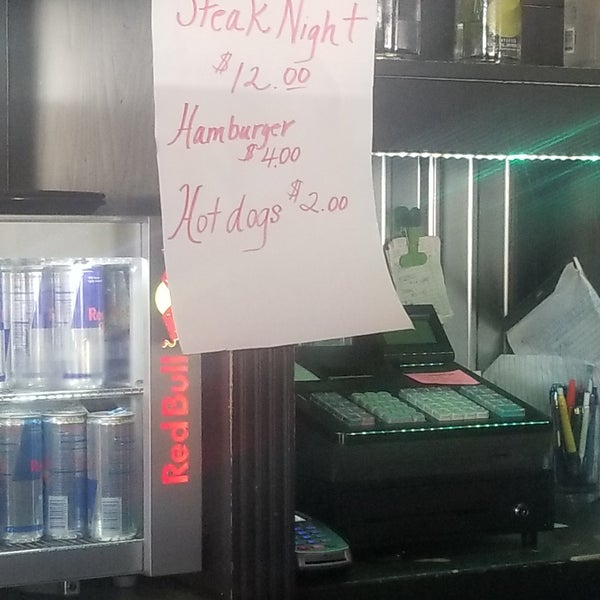 Steak Night
$12.00
Hamburger
$4.00
Hot dogs $2.00
Red Bull